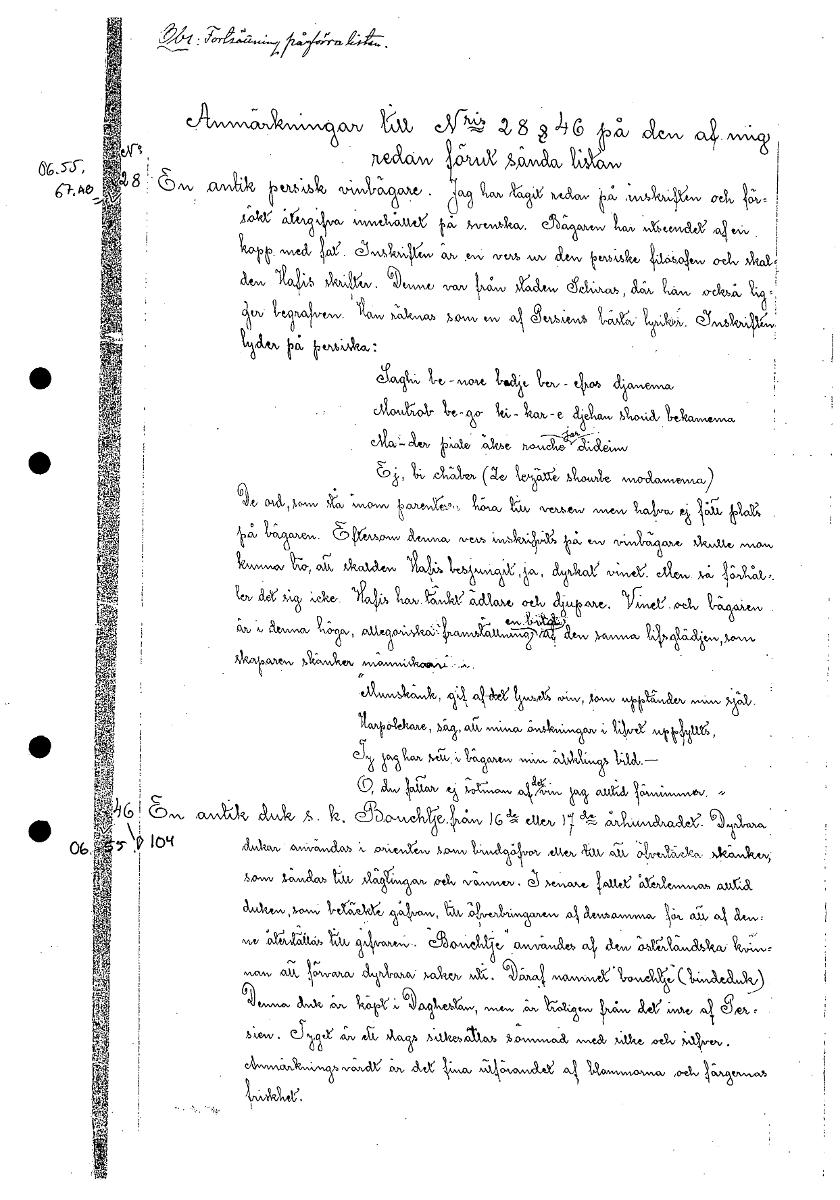 Obs: Fortsättning på förra listan.
Anmärkningar till Nris 28 & 46 på den af mig
redan förut sända listan
06.55.
67.AD
Nr
28 En antik persisk vinbägare. Jag har tagit redan på inskriften och för-
sökt återgifva innehållet på svenska. Bägaren har utseendet af en
kopp med fat. Inskriften är en vers ur den persiske filosofen och skal-
den Hafis skrifter. Denne var från staden Schiras, där han också lig-
ger begrafven. Han räknas som en af Persiens bästa lyriker. Inskriften
lyder på persiska:
Saghi be-nore badje ber-efros djanema
Moutrob be-go ki-kar-e djehan shouid bekamema
Ma-der piale äkse rouche jar dideim
Ej, bi chäber (Ze lezätte shourbe modamema)
De ord, som stå inom parentes, höra till versen men hafva ej fått plats
på bägaren. Eftersom denna vers inskrifvits på en vinbägare skulle man
kunna tro, att skalden Hafis besjungit, ja, dyrkat vinet. Men så förhål-
ler det sig icke. Hafis har tänkt ädlare och djupare. Vinet och bägaren
är i denna höga, allegoriska framställning en bild af den sanna lifsglädjen, som
skaparen skänker människan
"Munskänk, gif af det ljusets vin, som upptänder min själ.
Harpolekare, säg, att mina önskningar i lifvet uppfyllts,
Ty jag har sett i bägaren min älsklings bild.—
O, du fattar ej sötman af det vin jag alltid förnimmer."
46 En antik duk s. k. Bouchtje från 16de eller 17de århundradet. Dyrbara
06. 55 104 dukar användas i orienten som bindgåfvor eller till att öfvertäcka skänker,
som sändas till släktingar och vänner. I senare fallet återlemnas alltid
duken, som betäckte gåfvan, till öfverbringaren af densamma för att af den-
ne återställas till gifvaren. "Bouchtje" användes af den österländska kvin-
nan att förvara dyrbara saker uti. Däraf namnet "bouchtje" (bindeduk)
Denna duk är köpt i Daghestan, men är troligen från det inre af Per-
sien. Tyget är ett slags silkesatlas sömmad med silke och silfver.
Anmärkningsvärdt är det fina utförandet af blommorna och färgernas
friskhet.